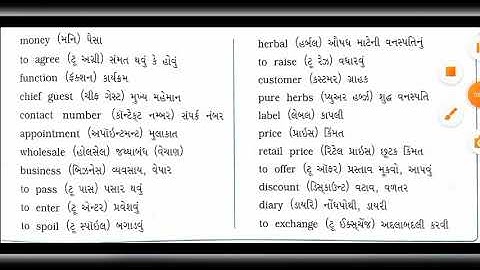 money (મનિ) પૈસા
to agree (ટૂ અગ્રી) સંમત થવું કે હોવું
function (ફંક્શન) કાર્યક્રમ
chief guest (ચીફ ગેસ્ટ) મુખ્ય મહેમાન
contact number (કૉન્ટેક્ટ નમ્બર) સંપર્ક નંબર
appointment (અપૉઇન્ટમન્ટ) મુલાકાત
wholesale (હૉલસેલ) જથ્થાબંધ (વેચાણ)
business (બિઝનેસ) વ્યવસાય, વેપાર
to pass (ટૂ પાસ) પસાર થવું
to enter (ટૂ એન્ટર) પ્રવેશવું
to spoil (ટૂ સ્પૉઇલ) બગાડવું
herbal (હર્બલ) ઔષધ માટેની વનસ્પતિનું
to raise (ટૂ રેઝ) વધારવું
customer (કસ્ટમર) ગ્રાહક
pure herbs (પ્યુઅર હર્બ્ઝ) શુદ્ધ વનસ્પતિ
label (લેબલ) કાપલી
price (પ્રાઇસ) કિંમત
retail price (રિટેલ પ્રાઇસ) છૂટક કિંમત
to offer (ટૂ ઑફર) પ્રસ્તાવ મૂકવો, આપવું
discount (ડિસ્કાઉન્ટ) વટાવ, વળતર
diary (ડાયરિ) નોંધપોથી, ડાયરી
to exchange (ટૂ ઈક્સ્ચેંજ) અદલાબદલી કરવી